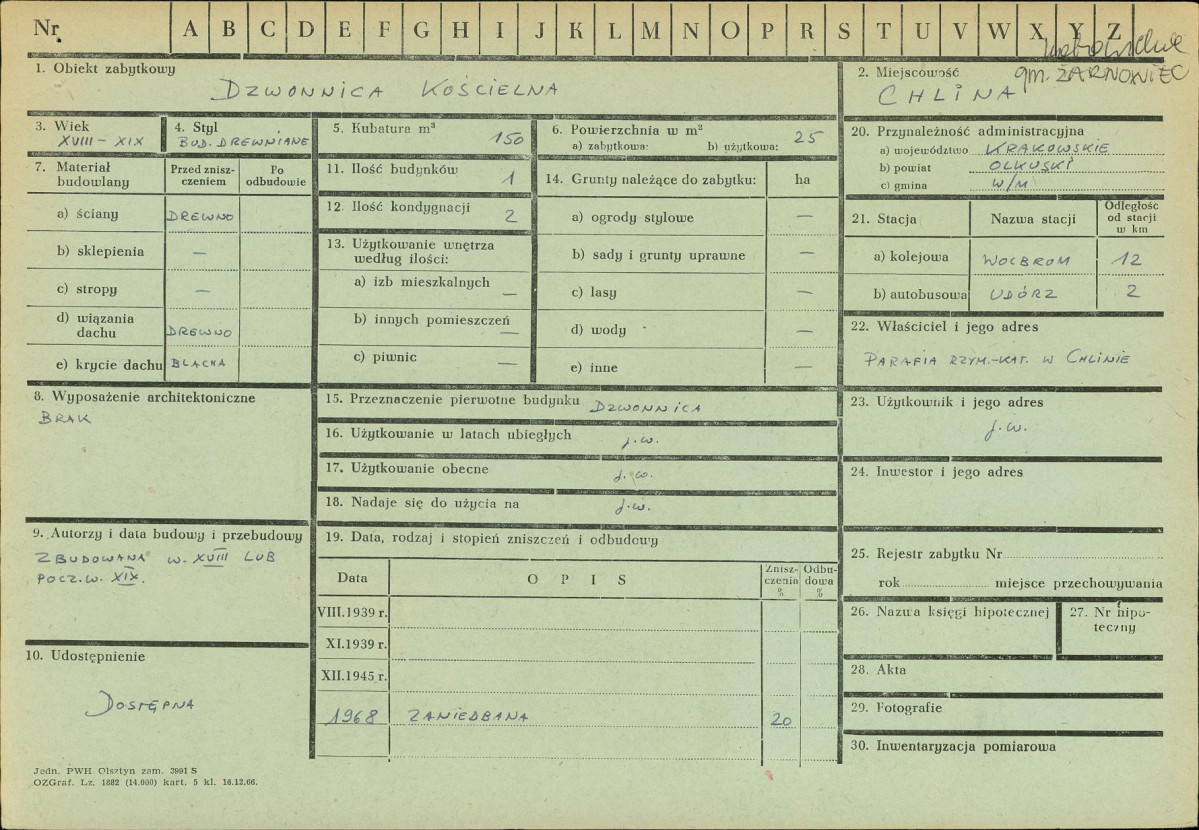 Nr.
A B C D E F G H I J K L M N O P R S T U V W X Y Z
1. Obiekt zabytkowy
DZWONNICA KOŚCIELNA
2. Miejscowość
gm. ŻARNOWIEC
CHLINA
3. Wiek
XVIII – XIX
4. Styl
BUD. DREWNIANE
5. Kubatura m³
150
6. Powierzchnia w m²
a) zabytkowa: b) użytkowa: 25
7. Materiał budowlany
Przed znisz-
czeniem
Po
odbudowie
a) ściany DREWNO
b) sklepienia —
c) stropy —
d) wiązania
dachu DREWNO
e) krycie dachu BLACHA
8. Wyposażenie architektoniczne
BRAK
9. Autorzy i data budowy i przebudowy
ZBUDOWANA W. XVIII LUB
POCZ. W. XIX.
10. Udostępnienie
DOSTĘPNA
11. Ilość budynków 1
12. Ilość kondygnacji 2
13. Użytkowanie wnętrza
według ilości:
a) izb mieszkalnych —
b) innych pomieszczeń —
c) piwnic —
14. Grunty należące do zabytku: ha
a) ogrody stylowe —
b) sady i grunty uprawne —
c) lasy —
d) wody —
e) inne —
15. Przeznaczenie pierwotne budynku DZWONNICA
16. Użytkowanie w latach ubiegłych j.w.
17. Użytkowanie obecne j.w.
18. Nadaje się do użycia na j.w.
19. Data, rodzaj i stopień zniszczeń i odbudowy
Data OPIS
Znisz-
czenia
%
Odbu-
dowa
%
VIII.1939 r.
XI.1939 r.
XII.1945 r.
1968 ZANIEDBANA 20
20. Przynależność administracyjna
a) województwo KRAKOWSKIE
b) powiat OLKUSKI
c) gmina W/M
21. Stacja Nazwa stacji
Odległość
od stacji
w km
a) kolejowa WOLBROM 12
b) autobusowa UDÓRZ 2
22. Właściciel i jego adres
PARAFIA RZYM.-KAT. W CHLINIE
23. Użytkownik i jego adres
j.w.
24. Inwestor i jego adres
25. Rejestr zabytku Nr
rok miejsce przechowywania
26. Nazwa księgi hipotecznej
27. Nr hipo-
teczny
28. Akta
29. Fotografie
30. Inwentaryzacja pomiarowa
Jedn. PWH Olsztyn zam. 3991 S
OZGraf. Lz. 1882 (14.000) kart. 5 kl. 16.12.66.